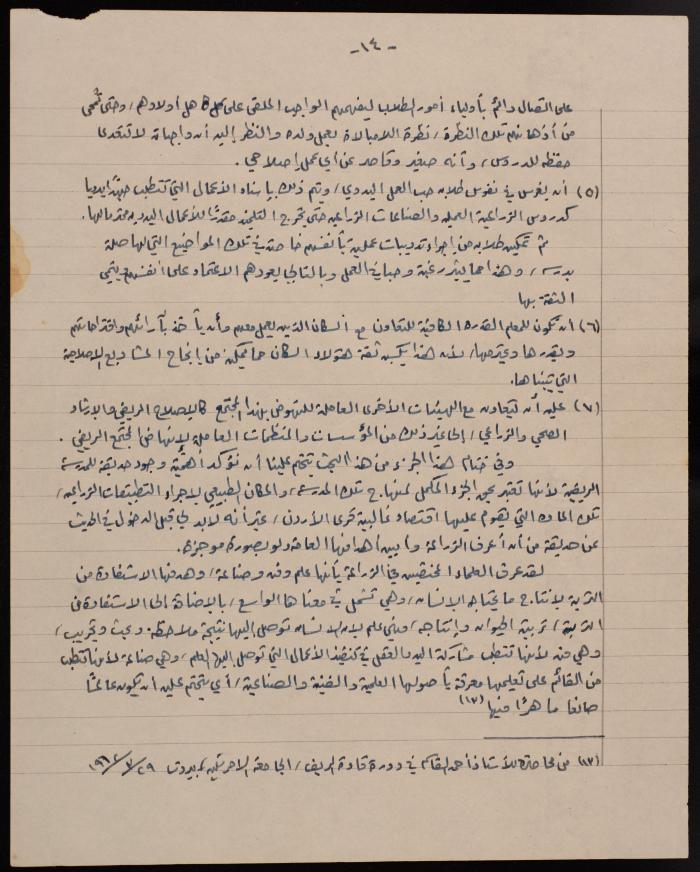 - ١٤ -
على اتصال دائم بأولياء أمور الطلاب ليفهمهم الواجب الملقى على كاهل أولادهم، وحتى تمحى
من أذهانهم تلك النظرة، نظرة اللامبالاة بعمل ولده والنظر إليه أن واجباته لا تتعدى
حفظه للدروس، وأنه صغير وقاصر عن أي عمل إصلاحي.
(٥) أن يغرس في نفوس طلابه حب العمل اليدوي، ويتم ذلك بإسناد الأعمال التي تتطلب جهدًا يدويا
كدروس الزراعة العملية والصناعات الزراعية حتى يخرج التلميذ مقدرًا للأعمال اليدوية
ثم تمكين طلابه من إجراء تدريبات عملية بأنفسهم خاصة في تلك المواضيع التي لها صلة
بدرسه، وهذا مما يثير رغبة وحبا في العمل وبالتالي يعودهم الاعتماد على أنفسهم
الثقة بها
(٦) أن تكون للمعلم القدرة الكافية للتعاون مع السكان الذين يعمل معهم وأن يأخذ بآرائهم واقتراحاتهم
ويقدرها ويحترمها، لأن هذا يكسبه ثقة هؤلاء السكان مما يمكن من إنجاح المشاريع الإصلاحية
التي يتبناها.
(٧) عليه أن يتعاون مع الهيئات الأخرى العاملة للنهوض بهذا المجتمع كالإصلاح الريفي والإرشاد
الصحي والزراعي، إلى غير ذلك من المؤسسات والمنظمات العاملة لإنهاض المجتمع الريفي.
وفي ختام هذا الجزء من هذا البحث يتحتم علينا أن نؤكد أهمية وجود حديقة للمدرسة
الريفية لأنها تعتبر بحق الجزء المكمل لمنهاج تلك المدرسة، والمكان الطبيعي لإجراء التطبيقات الزراعية،
تلك المادة التي يقوم عليها اقتصاد غالبية قرى الأردن، غير أنه لابد لي قبل الدخول في الحديث
عن حديقة من أن أعرف الزراعة وأبين أهدافها العامة ولو بصورة موجزة.
لقد عرف العلماء المختصين في الزراعة بأنها علم وفن وصناعة، وهدفها الاستفادة من
التربة لإنتاج ما يحتاجه الإنسان، وهي تشمل في معناها الواسع، بالإضافة إلى الاستفادة من
التربة، تربية الحيوان وإنتاجه، فهي علم لأن الإنسان توصل إليها نتيجة ملاحظة وبحث وتجريب،
وهي فن لأنها تتطلب مشاركة اليد والعقل في تنفيذ الأعمال التي توصل إليها العلم، وهي صناعة لأنها تتطلب
من القائم على تعليمها معرفة بأصولها العلمية والفنية والصناعية، أي يتحتم عليه ان يكون عالمًا
صانعا ماهرًا فيها (١٧)
(١٧) من محاضرة للأستاذ أحمد القاسم في دورة قادة الريف، الجامعة الامريكية ببيروت ٢٩/٧/١٩٦٢